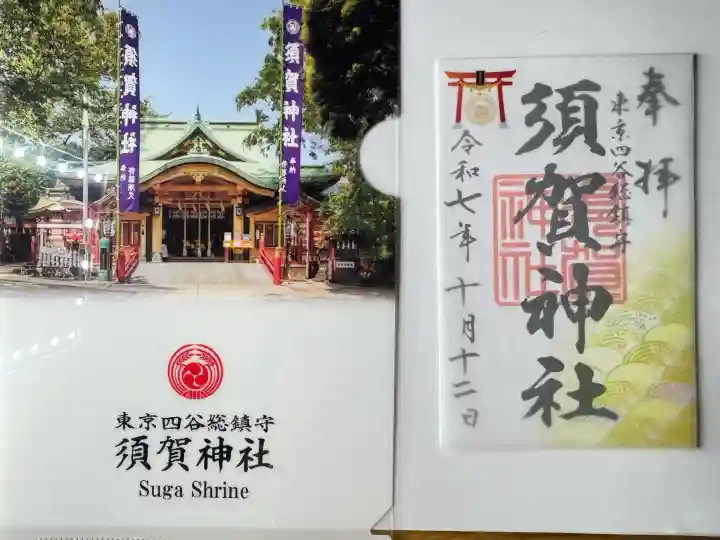 須賀神社
奉納
須賀神社
奉納
東京四谷総鎮守
須賀神社
Suga Shrine
奉拝
東京四谷総鎮守
須賀神社
須賀神社
令和七年十月十二日